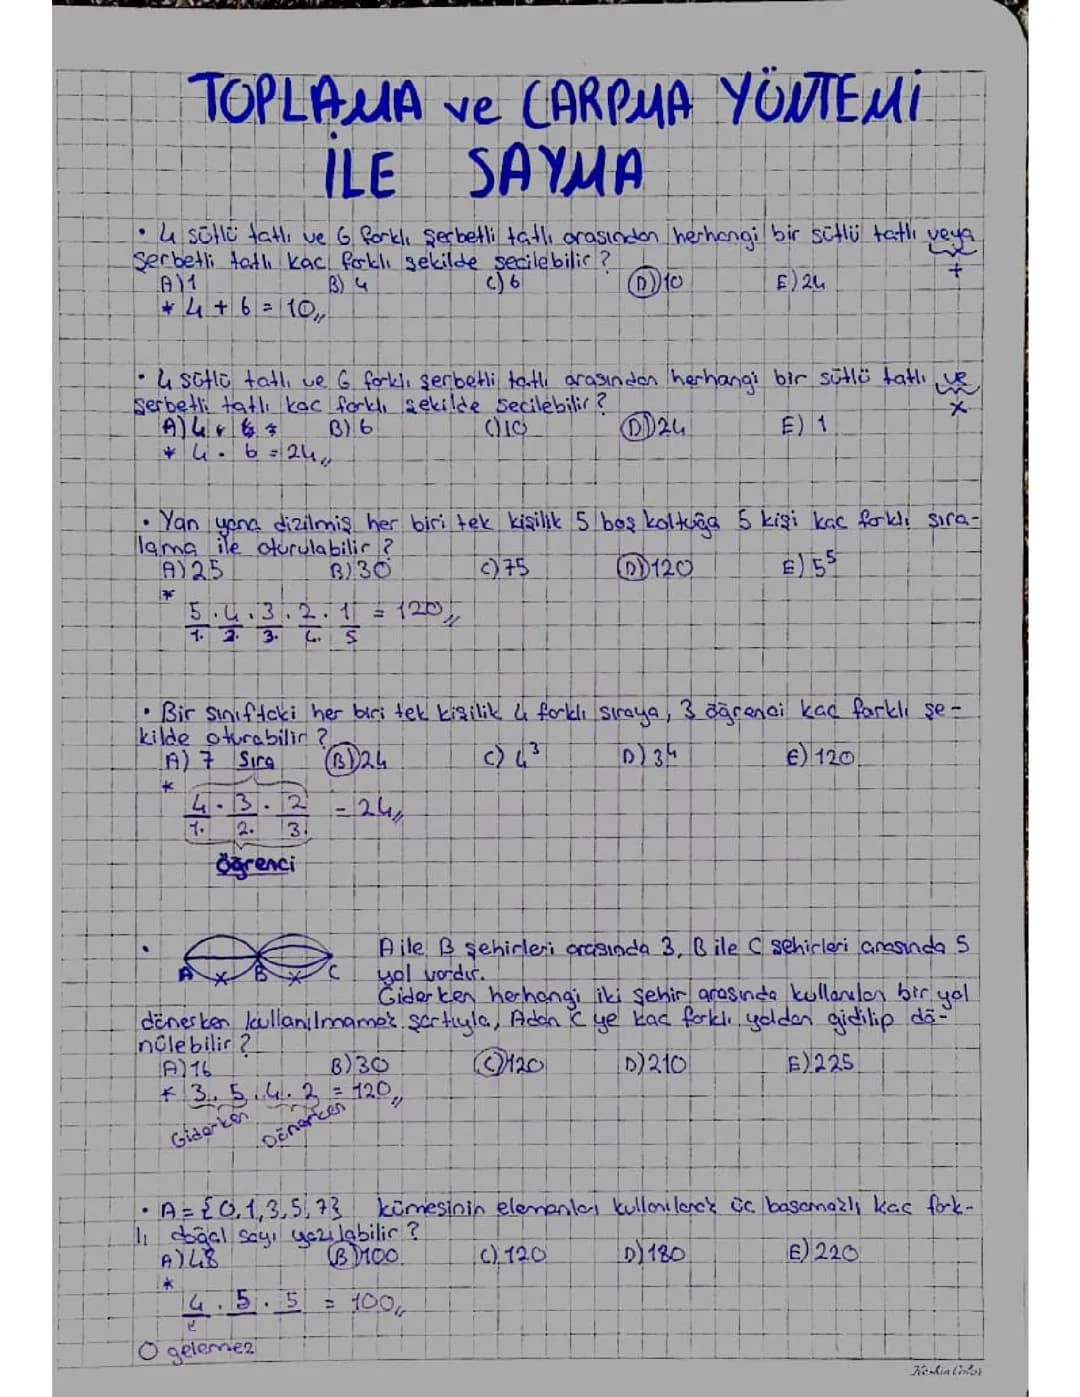 TOPLAMA ve ÇARPMA YÖNTEMİ
İLE SAYMA
• 4 sütlü tatlı ve 6 farklı şerbetli tatlı arasından herhangi bir sütlü tatlı veya
şerbetli tatlı kaç farklı şekilde seçilebilir?
+
A) 1 B) 4 C) 6 D) 10 E) 24
* 4 + 6 = 10,,
• 4 sütlü tatlı ve 6 farklı şerbetli tatlı arasından herhangi bir sütlü tatlı ve
şerbetli tatlı kaç farklı şekilde seçilebilir?
x
A) 4 B) 6 C) 10 D) 24 E) 1
* 4 . 6 = 24,,
• Yan yana dizilmiş her biri tek kişilik 5 boş koltuğa 5 kişi kaç farklı sıra-
lama ile oturulabilir?
A) 25 B) 30 C) 75 D) 120 E) 5⁵
*
5 . 4 . 3 . 2 . 1 = 120,,
1. 2. 3. 4. 5
• Bir sınıftaki her biri tek kişilik 4 farklı sıraya, 3 öğrenci kaç farklı şe-
kilde oturabilir?
A) 7 B) 24 C) 4³ D) 3⁴ E) 120
Sıra
*
4 . 3 . 2 = 24,,
1. 2. 3.
Öğrenci
• A ile B şehirleri arasında 3, B ile C şehirleri arasında 5
A x B x C yol vardır.
Giderken herhangi iki şehir arasında kullanılan bir yol
dönerken kullanılmamak şartıyla, A dan C ye kaç farklı yoldan gidilip dö-
nülebilir?
A) 16 B) 30 C) 120 D) 210 E) 225
* 3 . 5 . 4 . 2 = 120,,
Giderken Dönerken
• A = {0,1,3,5,7} kümesinin elemanları kullanılarak üç basamaklı kaç fark-
lı doğal sayı yazılabilir?
A) 48 B) 100 C) 120 D) 180 E) 220
*
4 . 5 . 5 = 100,,
0 gelemez